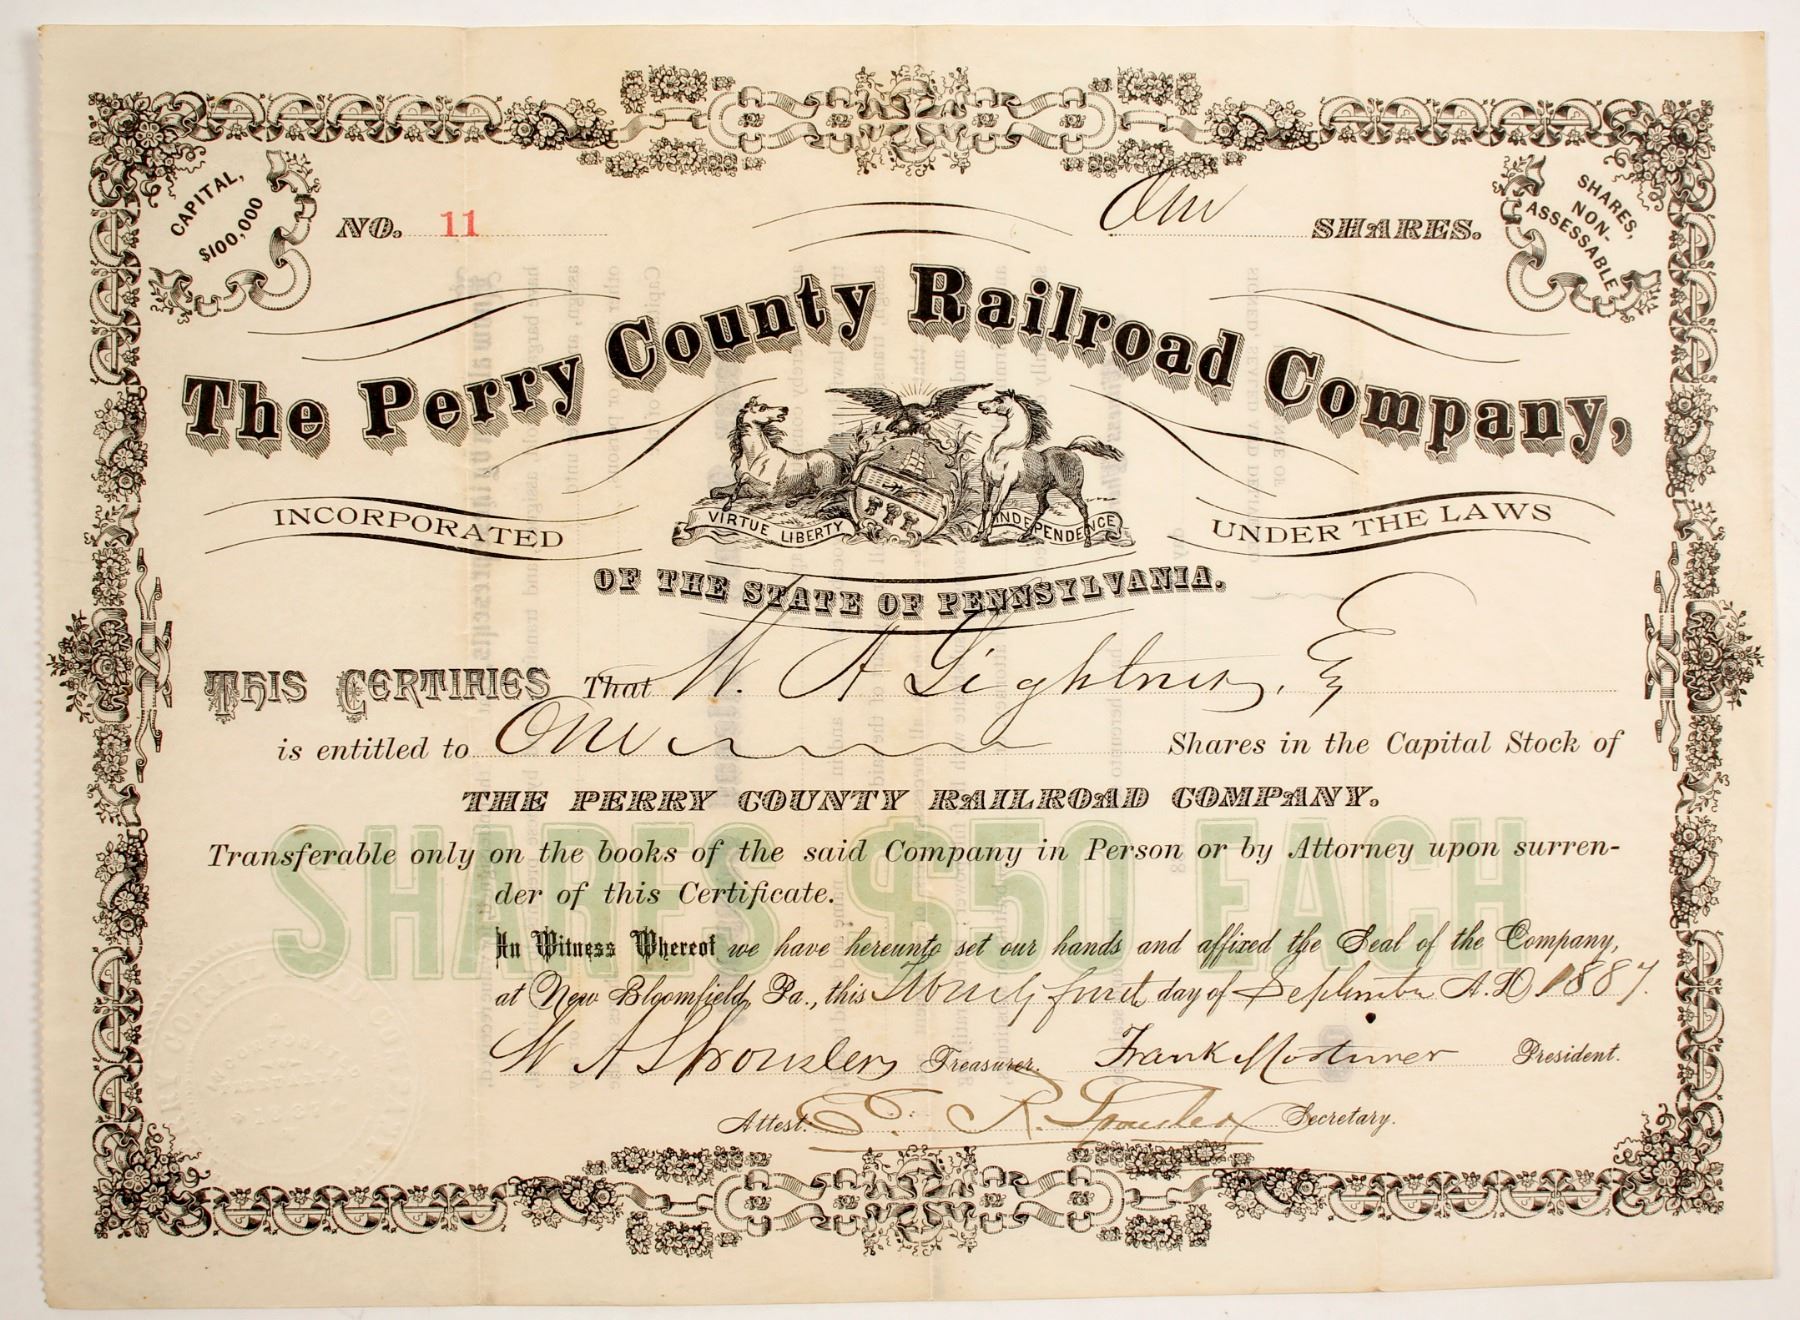 CAPITAL,
$100,000
NO. 11
One SHARES.
SHARES,
NON-
ASSESSABLE
The Perry County Railroad Company,
VIRTUE LIBERTY INDEPENDENCE
INCORPORATED UNDER THE LAWS
OF THE STATE OF PENNSYLVANIA.
THIS CERTIFIES That W. A Lightner, Esq
is entitled to One Shares in the Capital Stock of
THE PERRY COUNTY RAILROAD COMPANY.
SHARES $50 EACH
Transferable only on the books of the said Company in Person or by Attorney upon surren-
der of this Certificate.
In Witness Whereof we have hereunto set our hands and affixed the Seal of the Company,
at New Bloomfield, Pa., this Twenty first day of September A.D. 1887.
W A Sponsler Treasurer. Frank Mortimer President.
Attest: R. Sponsler Secretary.